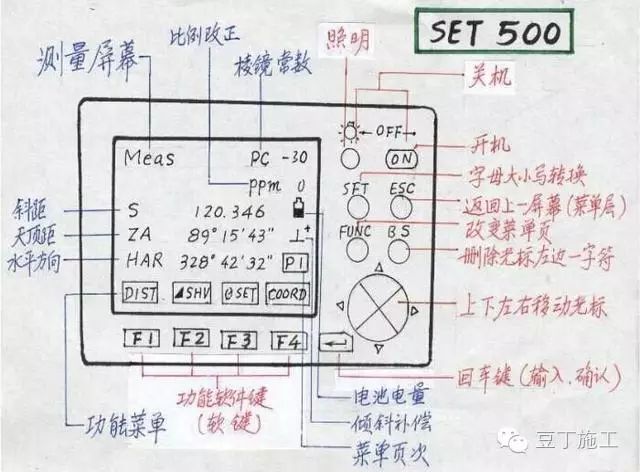 SET 500
测量屏幕
比例改正
棱镜常数
照明
关机
Meas
PC -30
←OFF→
ppm 0
ON
开机
字母大小写转换
斜距
S 120.346
SFT ESC
返回上一屏幕(菜单层)
天顶距
ZA 89°15'43" ⊥+
改变菜单页
水平方向
HAR 328°42'32" P1
FUNC BS
删除光标左边一字符
DIST ◢SHV θSET COORD
上下左右移动光标
F1 F2 F3 F4
回车键(输入.确认)
功能软件键
(软键)
功能菜单
电池电量
倾斜补偿
菜单页次
豆丁施工